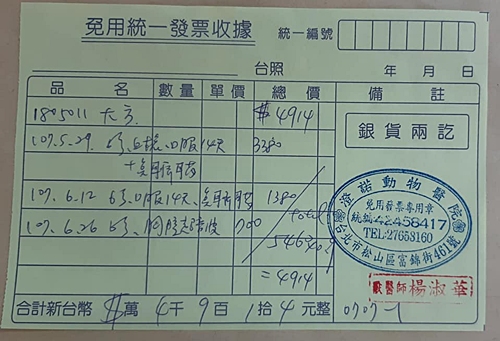 免用統一發票收據
統一編號
台照 年 月 日
品名 數量 單價 總價 備註
1805011 大方 $4914
銀貨兩訖
107.5.29. 口服14天 3380
107.6.12 口服14天、 1380
107.6.26 700
total
5460
=4914
澄諾動物醫院
免用發票專用章
統編:42458417
TEL:27653160
台北市松山區富錦街461號
獸醫師 楊淑華
合計新台幣 $萬 4千 9百 1拾 4元整 0707-1